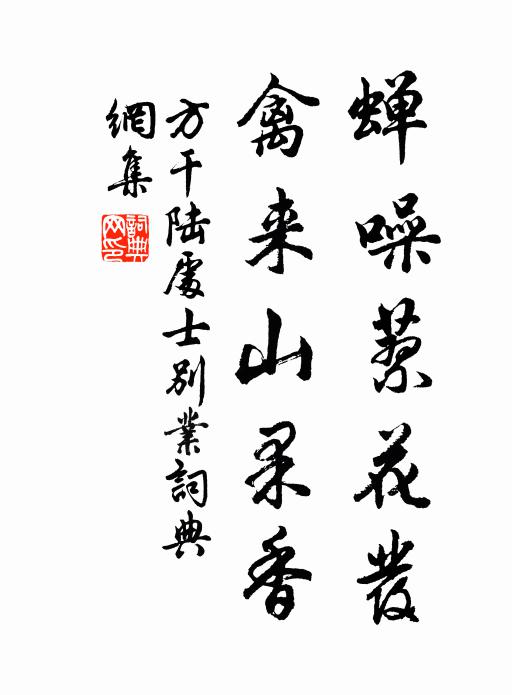 蝉噪蓼花發
禽来山果香
方干陸處士别業詞典
網集
詞典网印